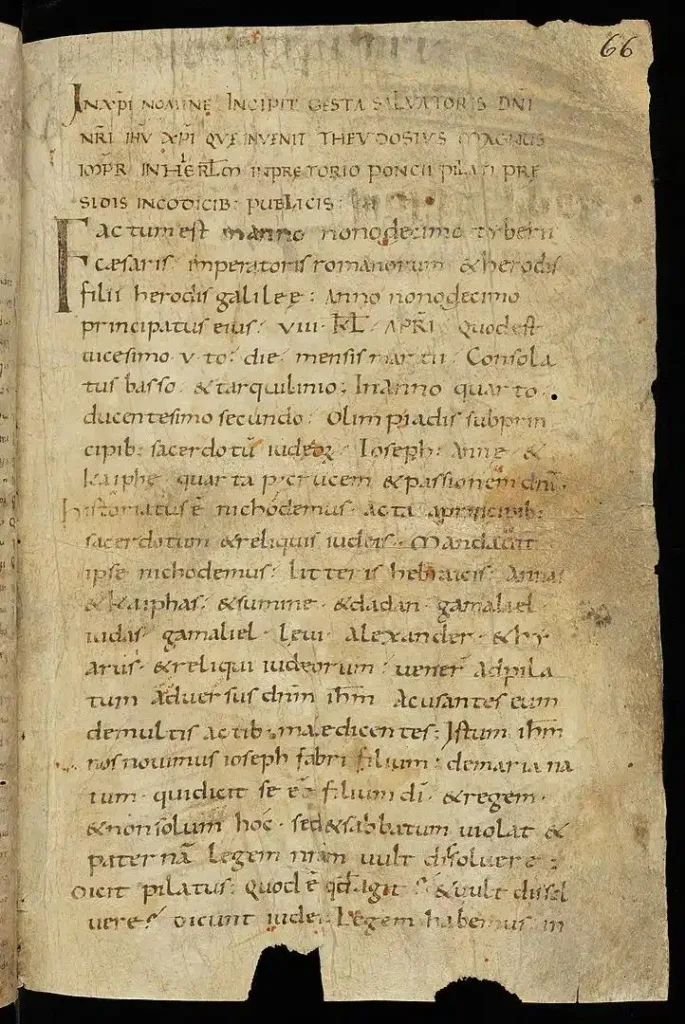 66
IN XPI NOMINE INCIPIT GESTA SALVATORIS DNI
NRI IHU XPI QUE INVENIT THEUDOSIUS MAGNUS
IMPR IN HERLM IN PRETORIO PONCII PILATI PRE
SIDIS IN CODICIB: PUBLICIS:
Factum est in anno nonodecimo tyberii
cæsaris imperatoris romanorum & herodis
filii herodis galilee: Anno nonodecimo
principatus eius: VIII KL APRI quod est
uicesimo v to: die mensis martii Consola
tus basso & tarquilinio: In anno quarto
ducentesimo secundo: Olimpiadis sub prin
cipib: sacerdotū iudeoꝝ Ioseph: Anne &
kaiphe quarta p crucem & passionem dnī
historiatus ē nichodemus acta a principib:
sacerdotum & reliquis iudeis. Mandauit
ipse nichodemus: litteris hebraicis: Annas
& kaiphas: & summe & dadan gamaliel
iudas gamaliel. leui. alexander. & hy
arus. & reliqui iudeorum: uener̄ ad pila
tum aduersus dnm ihm̄ Acusantes eum
de multis actib: maledicentes: Istum ihm̄
nos nouimus ioseph fabri filium: de maria na
tum. qui dicit se eē filium dī. & regem.
& non solum hoc. sed & sabbatum uiolat &
paternā legem nr̄am uult dissoluere:
Dicit pilatus: quod ē qđ agit & uult dissol
uere? Dicunt iudei: Legem habemus in